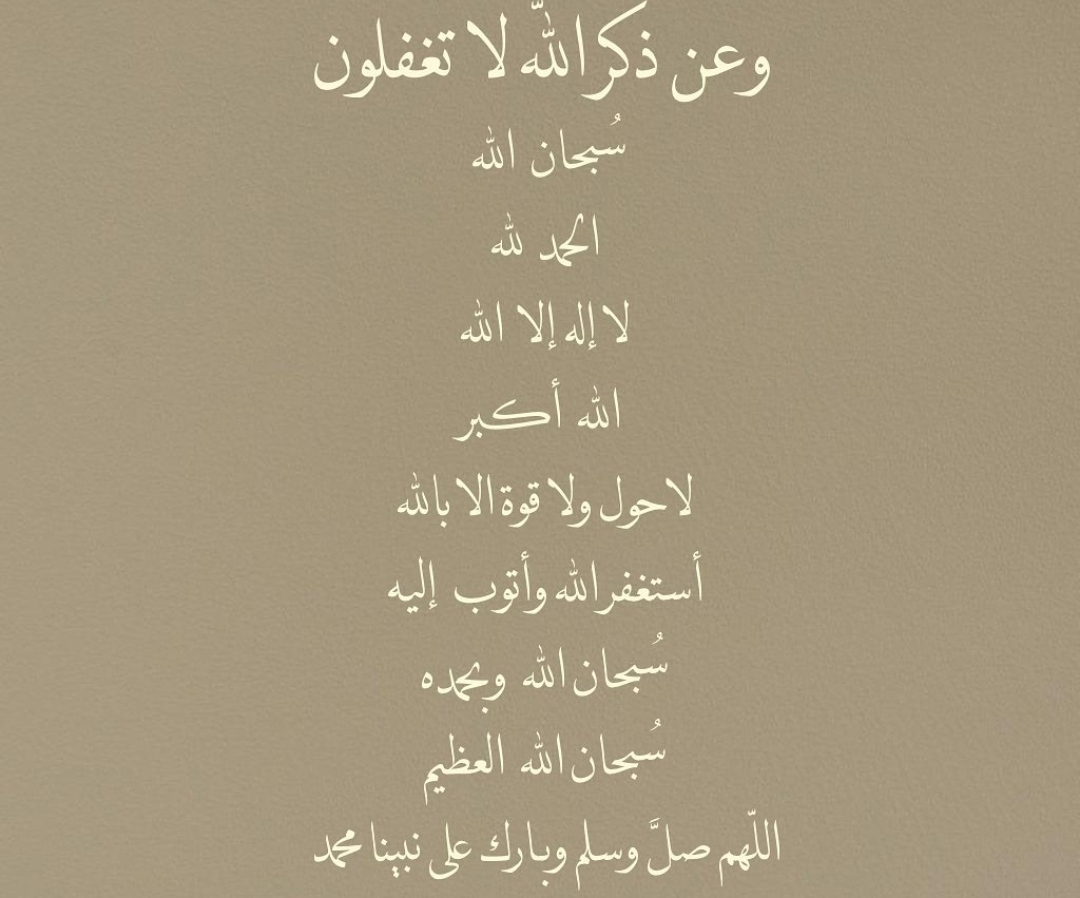 وعن ذكر الله لا تغفلون
سُبحان الله
الحمد لله
لا إله إلا الله
الله أكبر
لا حول ولا قوة الا بالله
أستغفر الله وأتوب إليه
سُبحان الله وبحمده
سُبحان الله العظيم
اللّهم صلَّ وسلم وبارك على نبينا محمد